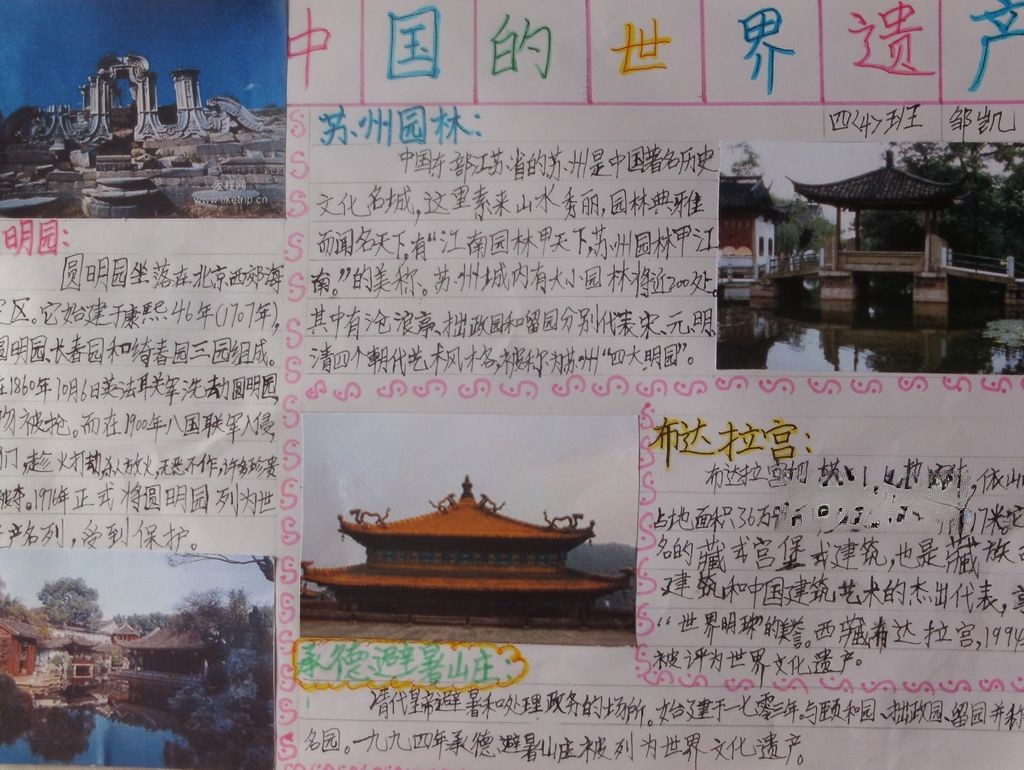 中国的世界遗产
苏州园林:
四<4>班 邹凯
中国东部江苏省的苏州是中国著名历史
文化名城,这里素来山水秀丽,园林典雅
而闻名天下,有“江南园林甲天下,苏州园林甲江
南。”的美称。苏州城内有大小园林将近200处。
其中有沧浪亭、拙政园和留园分别代表宋、元、明、
清四个朝代艺术风格,被称为苏州“四大明园”。
发程网
www.liketrip.cn
明园:
圆明园坐落在北京西郊海
区。它始建于康熙46年(1707年),
圆明园、长春园和绮春园三园组成。
在1860年10月6日英法联军洗劫圆明园,
物被抢。而在1900年八国联军入侵,
们,趁火打劫,杀人放火,无恶不作,许多珍宝
正式将圆明园列为世
产名列,受到保护。
布达拉宫:
布达拉宫
依山
占地面积36万
7米
名的藏式宫堡式建筑,也是藏族古
建筑和中国建筑艺术的杰出代表,享
“世界明珠”的美誉。西藏布达拉宫,1994
被评为世界文化遗产。
承德避暑山庄:
清代皇帝避暑和处理政务的场所。始建于一七零三年,与颐和园、拙政园、留园并称
名园。一九九四年承德避暑山庄被列为世界文化遗产。